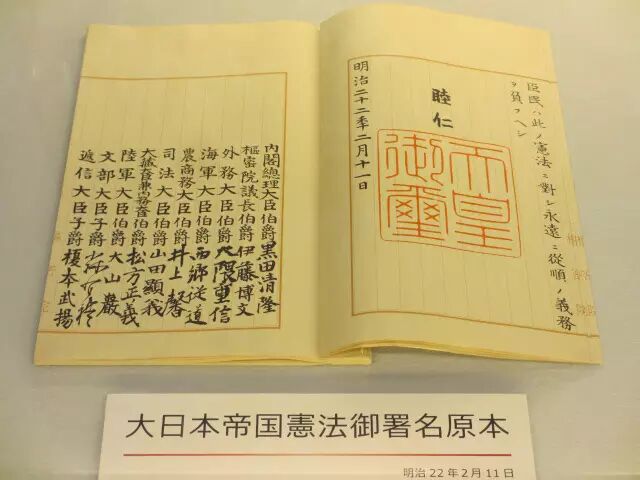 臣民ハ此ノ憲法ニ對シ永遠ニ從順ノ義務
ヲ負フヘシ
睦仁
天皇
御璽
明治二十二年二月十一日
内閣總理大臣伯爵黒田清隆
樞密院議長伯爵伊藤博文
外務大臣伯爵大隈重信
海軍大臣伯爵西郷従道
農商務大臣伯爵井上馨
司法大臣伯爵山田顕義
大蔵大臣兼内務大臣伯爵松方正義
陸軍大臣伯爵大山巌
文部大臣子爵
遞信大臣子爵榎本武揚
大日本帝国憲法御署名原本
明治22年2月11日